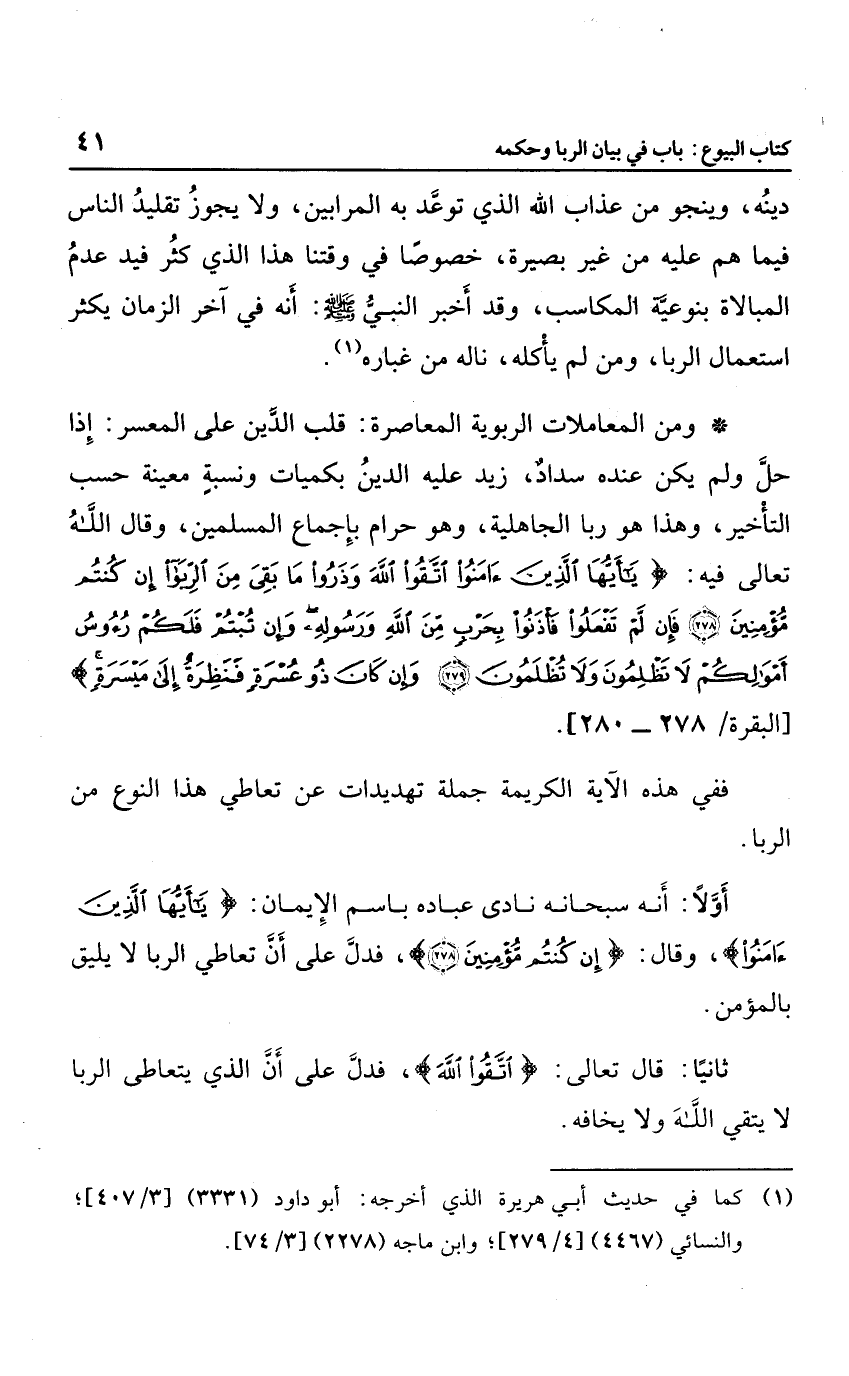 كتاب البيوع: باب في بيان الربا وحكمه ٤١
دينُه، وينجو من عذاب الله الذي توعَّد به المرابين، ولا يجوزُ تقليدُ الناس
فيما هم عليه من غير بصيرة، خصوصًا في وقتنا هذا الذي كثُر فيد عدمُ
المبالاة بنوعيَّة المكاسب، وقد أَخبر النبيُّ ﷺ: أَنه في آخر الزمان يكثر
استعمال الربا، ومن لم يأْكله، ناله من غباره(١).
* ومن المعاملات الربوية المعاصرة: قلب الدَّين على المعسر: إِذا
حلَّ ولم يكن عنده سدادٌ، زيد عليه الدينُ بكميات ونسبةٍ معينة حسب
التأْخير، وهذا هو ربا الجاهلية، وهو حرام بإِجماع المسلمين، وقال اللَّـٰهُ
تعالى فيه: ﴿ يَـٰٓأَيُّهَا ٱلَّذِينَ ءَامَنُوا۟ ٱتَّقُوا۟ ٱللَّهَ وَذَرُوا۟ مَا بَقِىَ مِنَ ٱلرِّبَوٰٓا۟ إِن كُنتُم
مُّؤْمِنِينَ ٢٧٨ فَإِن لَّمْ تَفْعَلُوا۟ فَأْذَنُوا۟ بِحَرْبٍ مِّنَ ٱللَّهِ وَرَسُولِهِۦ ۖ وَإِن تُبْتُمْ فَلَكُمْ رُءُوسُ
أَمْوَٰلِكُمْ لَا تَظْلِمُونَ وَلَا تُظْلَمُونَ ٢٧٩ وَإِن كَانَ ذُو عُسْرَةٍ فَنَظِرَةٌ إِلَىٰ مَيْسَرَةٍ ۚ ﴾
[البقرة/ ٢٧٨ ــ ٢٨٠].
ففي هذه الآية الكريمة جملة تهديدات عن تعاطي هذا النوع من
الربا.
أَوَّلًا: أَنه سبحانه نادى عباده باسم الإِيمان: ﴿ يَـٰٓأَيُّهَا ٱلَّذِينَ
ءَامَنُوا۟ ﴾، وقال: ﴿ إِن كُنتُم مُّؤْمِنِينَ ٢٧٨ ﴾، فدلَّ على أَنَّ تعاطي الربا لا يليق
بالمؤمن.
ثانيًا: قال تعالى: ﴿ ٱتَّقُوا۟ ٱللَّهَ ﴾، فدلَّ على أَنَّ الذي يتعاطى الربا
لا يتقي اللَّـٰهَ ولا يخافه.
(١) كما في حديث أبي هريرة الذي أخرجه: أبو داود (٣٣٣١) [٤٠٧/٣]؛
والنسائي (٤٤٦٧) [٢٧٩/٤]؛ وابن ماجه (٢٢٧٨) [٧٤/٣].